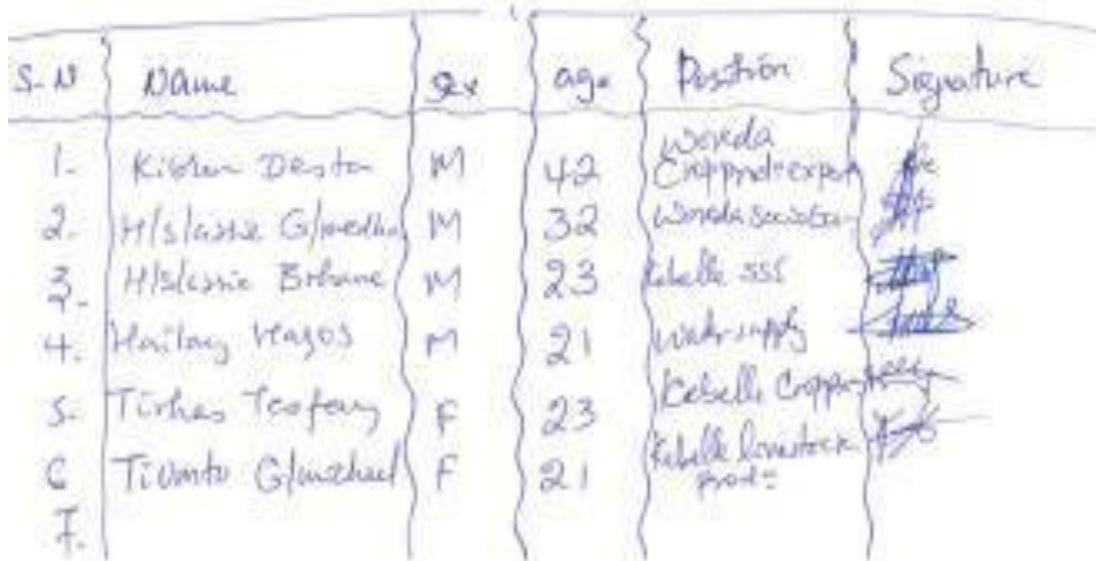 S-N Name Sex age Position Signature
1- Kibrom Desta M 42 Woreda
Crop prod. expert
2- H/slassie G/medhn M 32 Woreda
3- H/slassie Brhane M 23 Kebelle SSI
4. Hailay Hagos M 21 Water supply
5- Tirhas Tesfay F 23 Kebelle Crop
6 G/michael F 21 Kebelle livestock
prod-
7.